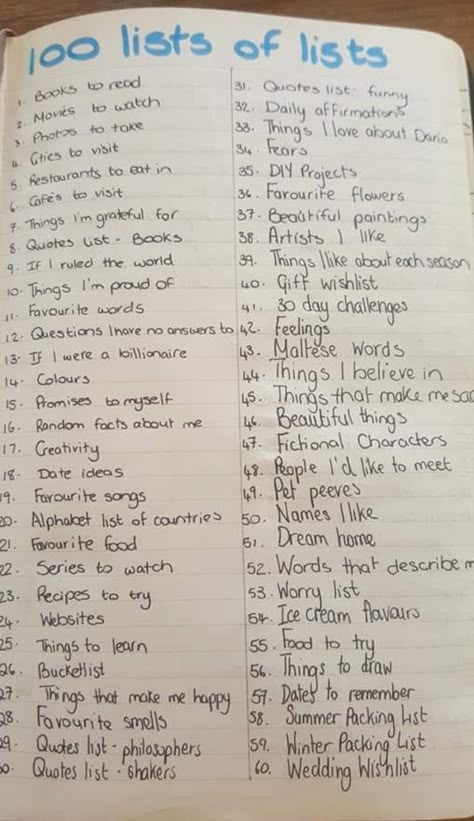 100 lists of lists
1. Books to read
2. Movies to watch
3. Photos to take
4. Cities to visit
5. Restaurants to eat in
6. Cafe's to visit
7. Things I'm grateful for
8. Quotes list - Books
9. If I ruled the world
10. Things I'm proud of
11. Favourite words
12. Questions I have no answers to
13. If I were a billionaire
14. Colours
15. Promises to myself
16. Random facts about me
17. Creativity
18. Date ideas
19. Favourite songs
20. Alphabet list of countries
21. Favourite food
22. Series to watch
23. Recipes to try
24. Websites
25. Things to learn
26. Bucketlist
27. Things that make me happy
28. Favourite smells
29. Quotes list - philosophers
30. Quotes list - shakers
31. Quotes list - funny
32. Daily affirmations
33. Things I love about Dario
34. Fears
35. DIY Projects
36. Favourite flowers
37. Beautiful paintings
38. Artists I like
39. Things I like about each season
40. Gift wishlist
41. 30 day challenges
42. Feelings
43. Maltese words
44. Things I believe in
45. Things that make me sad
46. Beautiful things
47. Fictional Characters
48. People I'd like to meet
49. Pet peeves
50. Names I like
51. Dream home
52. Words that describe m
53. Worry list
54. Ice cream flavours
55. Food to try
56. Things to draw
57. Dates to remember
58. Summer Packing List
59. Winter Packing List
60. Wedding Wishlist